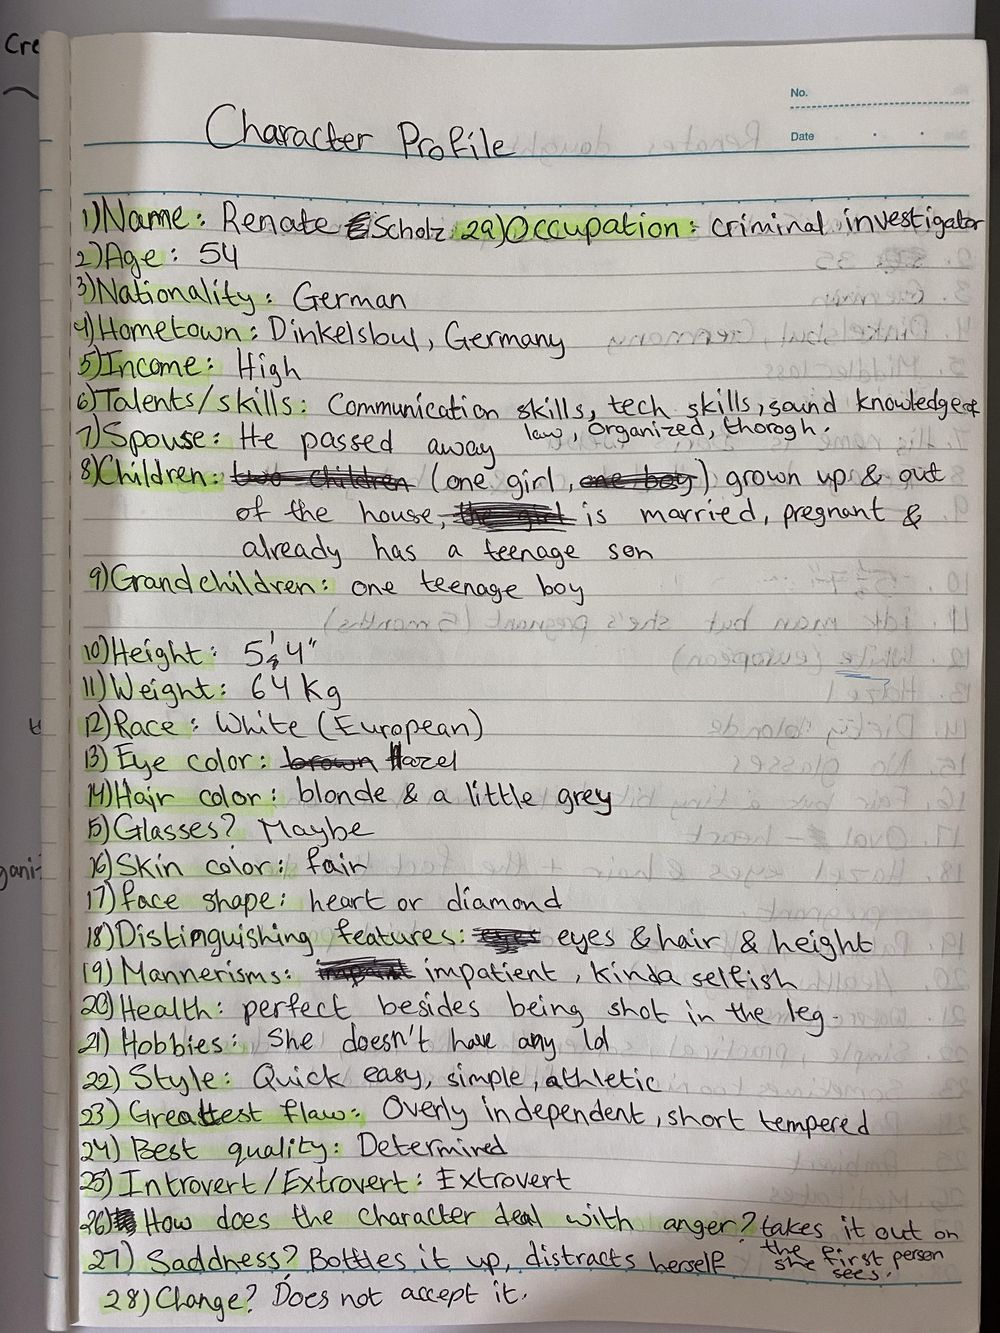 Cre
No.
Date
Character Profile
1) Name: Renate Scholz 29) Occupation: criminal investigator
2) Age: 54
3) Nationality: German
4) Hometown: Dinkelsbul, Germany
5) Income: High
6) Talents/skills: Communication skills, tech skills, sound knowledge of
law, organized, thorogh.
7) Spouse: He passed away
8) Children: two children (one girl, one boy) grown up & out
of the house, the girl is married, pregnant &
already has a teenage son
9) Grandchildren: one teenage boy
10) Height: 5'4"
11) Weight: 64 kg
12) Race: White (European)
13) Eye color: brown Hazel
14) Hair color: blonde & a little grey
15) Glasses? Maybe
16) Skin color: fair
17) face shape: heart or diamond
18) Distinguishing features: eyes eyes & hair & height
19) Mannerisms: impatient, kinda selfish
20) Health: perfect besides being shot in the leg.
21) Hobbies: She doesn't have any lol
22) Style: Quick easy, simple, athletic
23) Greattest flaw: Overly independent, short tempered
24) Best quality: Determined
25) Introvert/Extrovert: Extrovert
26) How does the character deal with anger? takes it out on
the first person
she sees.
27) Saddness? Bottles it up, distracts herself
28) Change? Does not accept it.